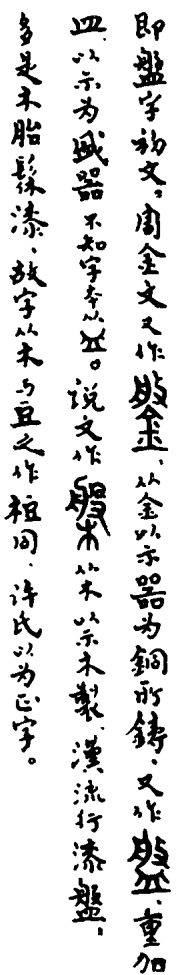 即盤字初文。周金文又作鎜，从金以示器为銅所鋳，又作盤，重加
皿，以示为盛器，不知字本从皿。说文作槃，从木以示木製，漢流行漆盤，
多是木胎髹漆，故字从木与豆之作梪同，许氏以为正字。